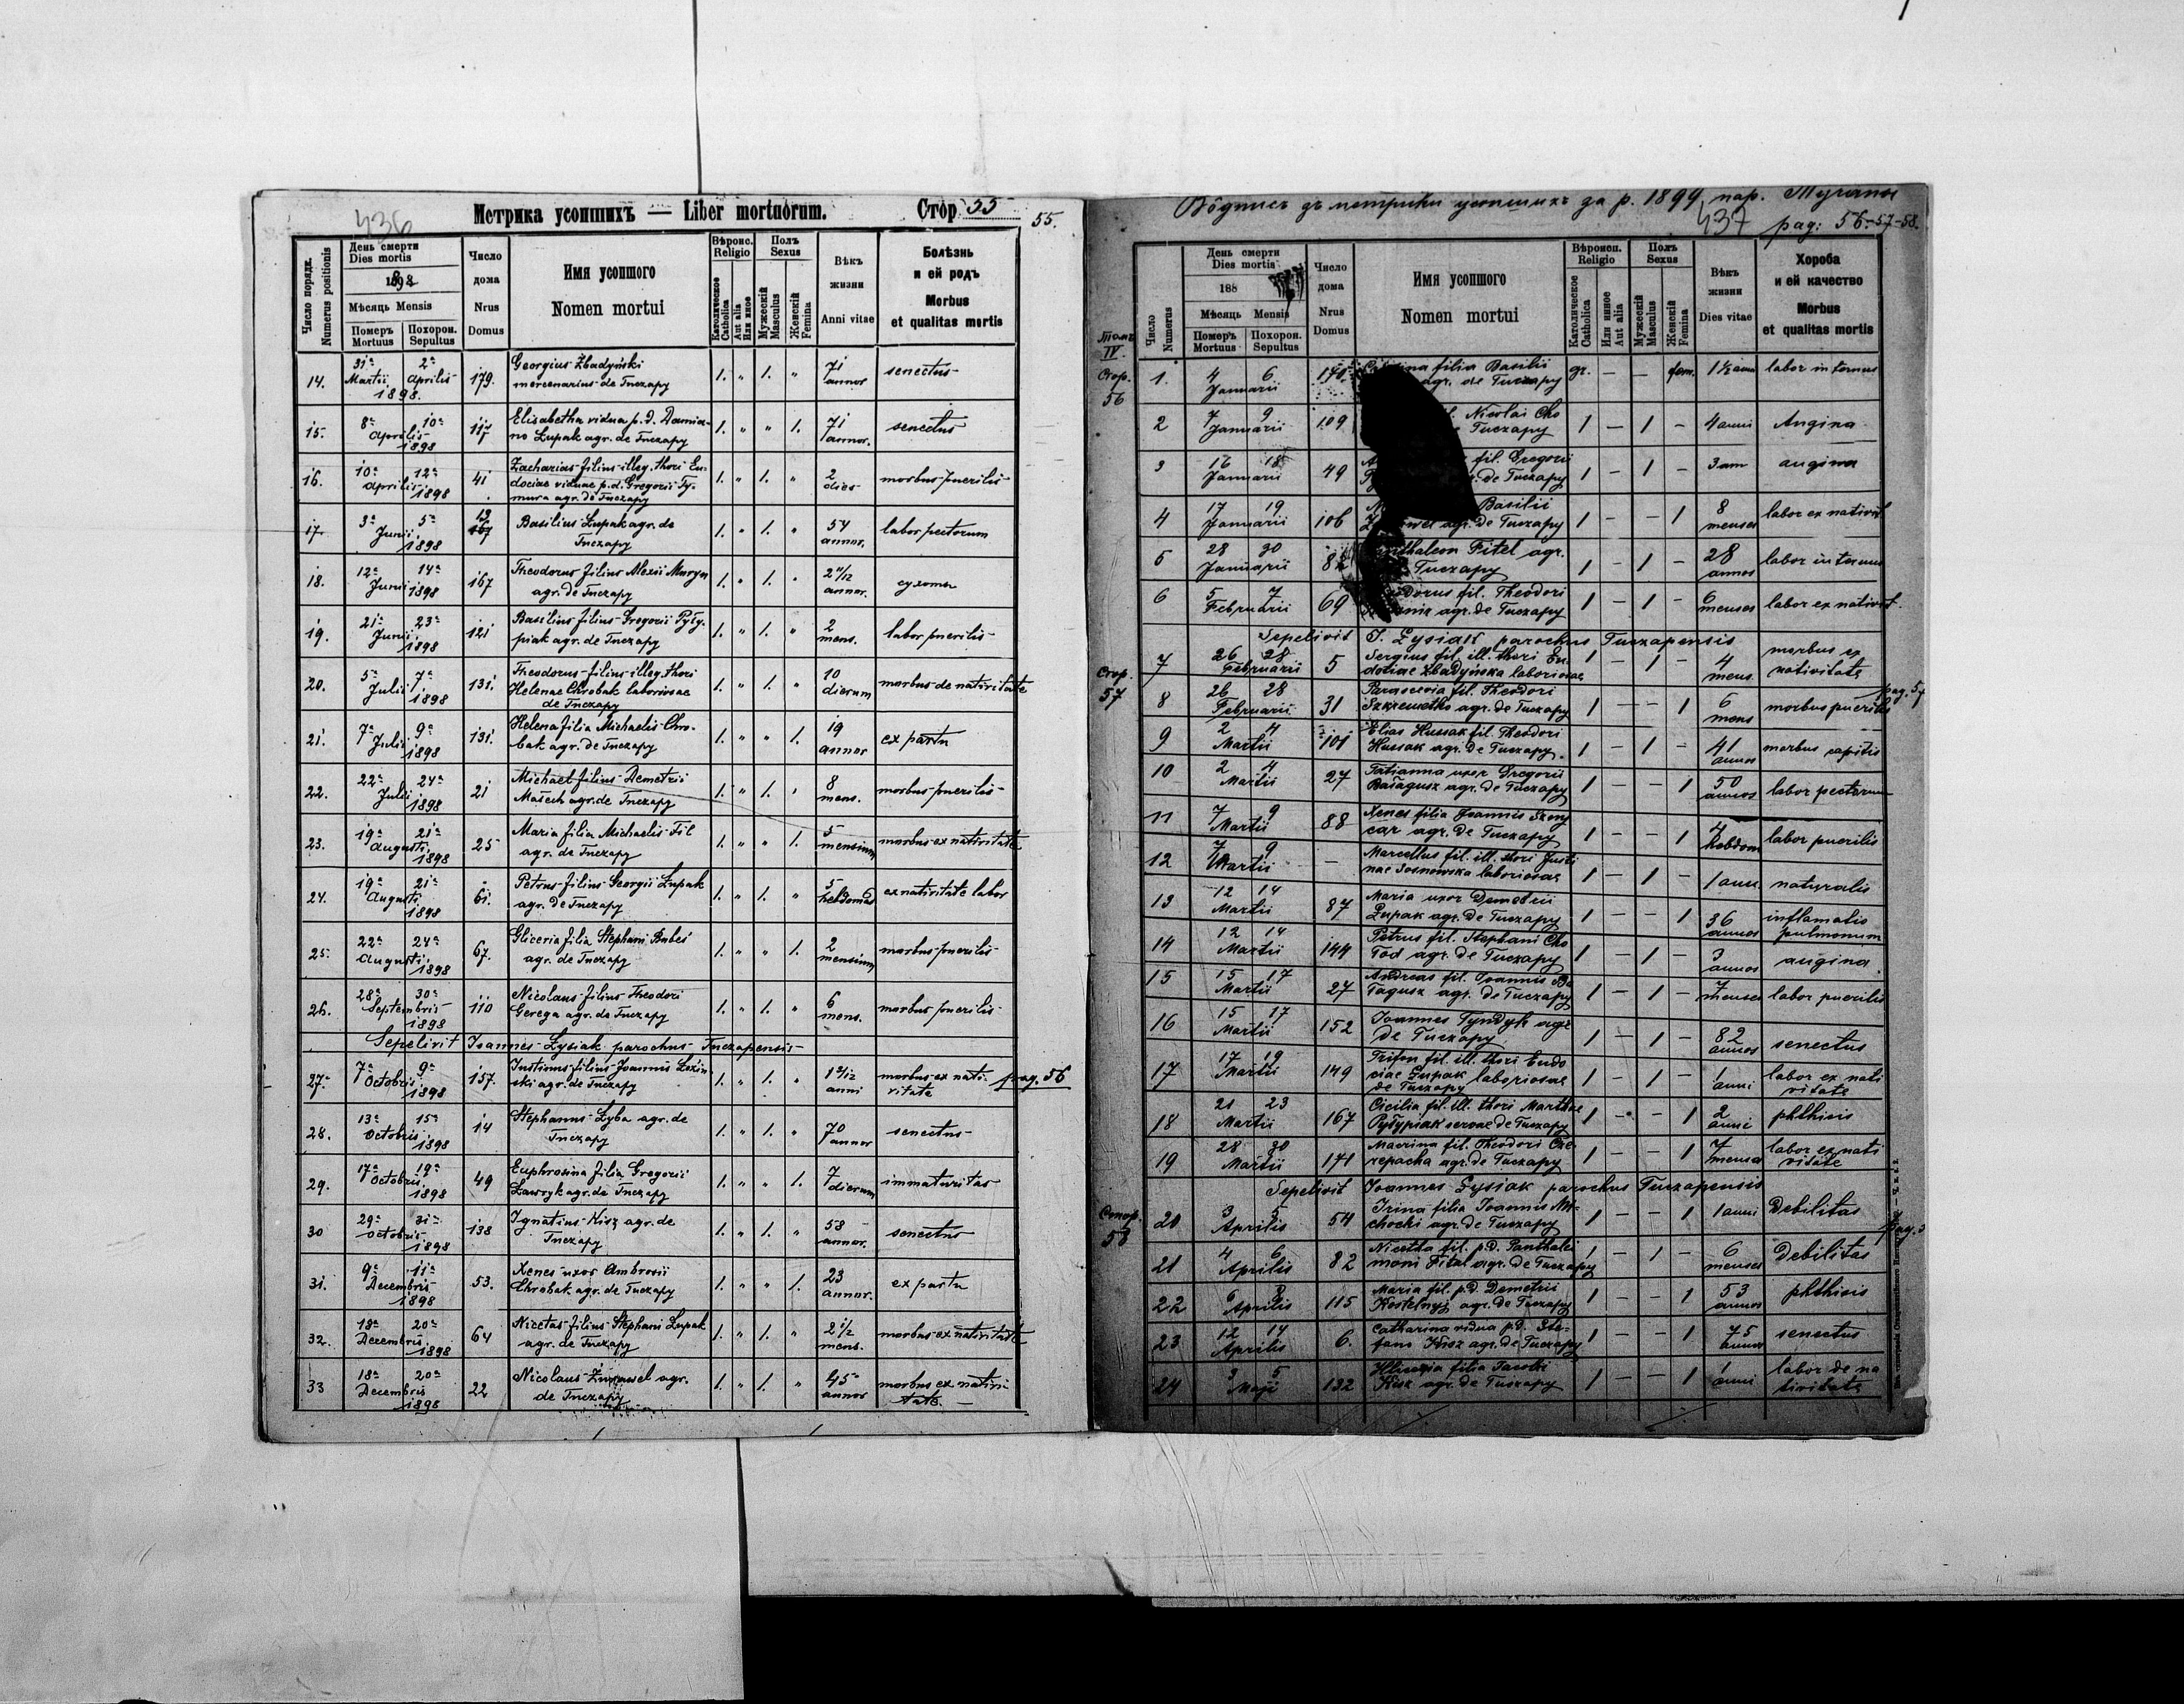 436
Метрика усопшихъ — Liber mortuorum. Стор 55
55.
Число порядк. Numerus positionis
День смерти Dies mortis 1898
Мѣсяць Mensis
Померъ Mortuus
Похорон. Sepultus
Число дома Nrus Domus
Имя усопшого Nomen mortui
Вѣроис. Religio
Католическое Catholica
Aut alia Или иное
Полъ Sexus
Мужескій Masculus
Женскій Femina
Вѣкъ жизни Anni vitae
Болѣзнь и ей родъ Morbus et qualitas mortis
14. 31a Martii 2a Aprilis 1898. 179. Georgius Zbadyński mercenarius de Tuczapy 1. " 1. " 71 annor senectus
15. 8a 10a Aprilis 1898 117 Elisabetha vidua p. d. Damiano Łupak agr. de Tuczapy 1. " " 1. 71 annor. senectus
16. 10a 12a Aprilis 1898 41 Zacharias filius illeg. thori Eudociae viduae p. d. Gregorii Tymura agr. de Tuczapy 1. " 1. " 2 dies morbus puerilis
17. 3a 5a Junii 1898 13 167 Basilius Łupak agr. de Tuczapy 1. " 1. " 54 annor. labor pectorum
18. 12a 14a Junii 1898 167 Theodorus filius Alexii Maryn agr. de Tuczapy 1. " 1. " 2 11/12 annor. сухоты
19. 21a 23a Junii 1898 121 Basilius filius Gregorii Pyłypiak agr. de Tuczapy 1. " 1. " 2 mens. labor puerilis
20. 5a 7a Julii 1898 131. Theodorus filius illeg. thori Helenae Chrobak laboriosae de Tuczapy 1. " 1. " 10 dierum morbus de nativitate
21. 7a 9a Julii 1898 131. Helena filia Michaelis Chrobak agr. de Tuczapy 1. " " 1. 19 annor ex partu
22. 22a 24a Julii 1898 21 Michael filius Demetrii Małech agr. de Tuczapy 1. " 1. " 8 mens. morbus puerilis
23. 19a 21a Augusti 1898 25 Maria filia Michaelis Fil agr. de Tuczapy 1. " " 1. 5 mensium morbus ex nativitate
24. 19a 21a Augusti 1898 61. Petrus filius Georgii Łupak agr. de Tuczapy 1. " 1. " 5 hebdomad ex nativitate labor
25. 22a 24a Augusti 1898 67. Gliceria filia Stephani Bubeś agr. de Tuczapy 1. " " 1. 2 mensium morbus puerilis
26. 28a 30a Septembris 1898 110 Nicolaus filius Theodori Gerega agr. de Tuczapy 1. " 1. " 6 mens. morbus puerilis
Sepelivit Joannes Łysiak parochus Tuczapensis
27. 7a 9a Octobris 1898 157. Justinus filius Joannis agr. de Tuczapy 1. " 1. " anni morbus ex nativitate pag. 56
28. 13a 15a Octobris 1898 14 Stephanus Łyba agr. de Tuczapy 1. " 1. " 70 annor senectus
29. 17a 19a Octobris 1898 49 Euphrosina filia Gregorii Ławryk agr. de Tuczapy 1. " " 1. 7 dierum immaturitas
30 29a 31a Octobris 1898 138 Ignatius Kisz agr. de Tuczapy 1. " 1. " 58 annor. senectus
31. 9a 11a Decembris 1898 53. Xenes uxor Ambrosii Chrobak agr. de Tuczapy 1. " " 1. 23 annor. ex partu
32. 18a 20a Decembris 1898 64 Nicetas filius Stephani Łupak agr. de Tuczapy 1. " 1. " 2 1/2 mens. morbus ex nativitate
33 18a 20a Decembris 1898 22 Nicolaus Żurawel agr. de Tuczapy 1. " 1. " 45 annor morbus ex nativitate.
Вôдпись зъ метрики усопшихъ за р. 1899 пар. Тучапы
437 pag: 56-57-58.
Число Numerus
День смерти Dies mortis 188
Мѣсяць Mensis
Померъ Mortuus
Похорон. Sepultus
Число дома Nrus Domus
Имя усопшого Nomen mortui
Вѣроисп. Religio
Католическое Catholica
Или инное Aut alia
Полъ Sexus
Мужескій Masculus
Женскій Femina
Вѣкъ жизни Dies vitae
Хороба и ей качество Morbus et qualitas mortis
Томъ IV. Стор. 56
1. 4 6 Januarii filia Basilii agr. de Tuczapy gr. — — fem. 1½ anni labor internus
2 7 9 Januarii 109 Nicolai Cho Tuczapy 1 — 1 — 4 anni Angina
3 16 18 Januarii 49 fil. Gregorii de Tuczapy 1 — 1 — 3 ann angina
4 17 19 Januarii 106 Basilii agr. de Tuczapy 1 — — 1 8 menses labor ex nativit
5 28 30 Januarii Fitel agr. Tuczapy 1 — 1 — 28 annos labor internus
6 5 7 Februarii 69 fil. Theodori agr. de Tuczapy 1 — 1 — 6 menses labor ex nativit.
Sepelivit J. Łysiak parochus Tuczapensis
Стор. 57
7 26 28 Februarii 5 Sergius fil. ill. thori Eudotiae Zbadyńska laboriosae 1 — 1 — 4 mens. morbus ex nativitate
8 26 28 Februarii 31 Parascevia fil. Theodori agr. de Tuczapy 1 — — 1 6 mens morbus puerilis pag. 57
9 2 4 Martii 101 Elias Hussak fil. Theodori Hussak agr. de Tuczapy 1 — 1 — 41 annos morbus capitis
10 2 4 Martii 27 Tatianna uxor Gregorii Bałagusz agr. de Tuczapy 1 — — 1 50 annos labor pectorum
11 7 9 Martii 88 Xenes filia Joannis agr. de Tuczapy 1 — — 1 4 hebdom labor puerilis
12 7 9 Martii — Marcellus fil. ill. thori Justinae Sosnowska laboriosae 1 — 1 — 1 ann. naturalis
13 12 14 Martii 87 Maria uxor Demetrii Łupak agr. de Tuczapy 1 — — 1 36 annos inflamatio pulmonum
14 12 14 Martii 144 Petrus fil. Stephani Chołod agr. de Tuczapy 1 — 1 — 3 annos angina
15 15 17 Martii 27 Andreas fil. Joannis Bałagusz agr. de Tuczapy 1 — 1 — 7 menses labor puerilis
16 15 17 Martii 152 Joannes Tyndyk agr de Tuczapy 1 — 1 — 82 annos senectus
17 17 19 Martii 149 Trifon fil. ill. thori Eudociae Łupak laboriosae de Tuczapy 1 — 1 — 1 anni labor ex nativitate
18 21 23 Martii 167 Cicilia fil. ill. thori Marthae Pyłypiak servae de Tuczapy 1 — — 1 2 anni phthisis
19 28 30 Martii 171 Macrina fil. Theodori Czerepacha agr. de Tuczapy 1 — — 1 7 menses labor ex nativitate
Sepelivit Joannes Łysiak parochus Tuczapensis
Стор. 58
20 3 5 Aprilis 54 Irina filia Joannis agr. de Tuczapy 1 — — 1 1 anni Debilitas
21 4 6 Aprilis 82 Nicetha fil. p. d. Panthaleimoni Fitel agr. de Tuczapy 1 — 1 — 6 menses Debilitas
22 6 8 Aprilis 115 Maria fil. p. d. Demetrii Kostelnyj agr. de Tuczapy 1 — — 1 53 annos phthisis
23 12 14 Aprilis 6. Catharina vidua p. d. Stefano Kisz agr. de Tuczapy 1 — — 1 75 annos senectus
24 3 5 Maji 132 filia Jacobi Kisz agr. de Tuczapy 1 — — 1 1 anni labor de nativitate